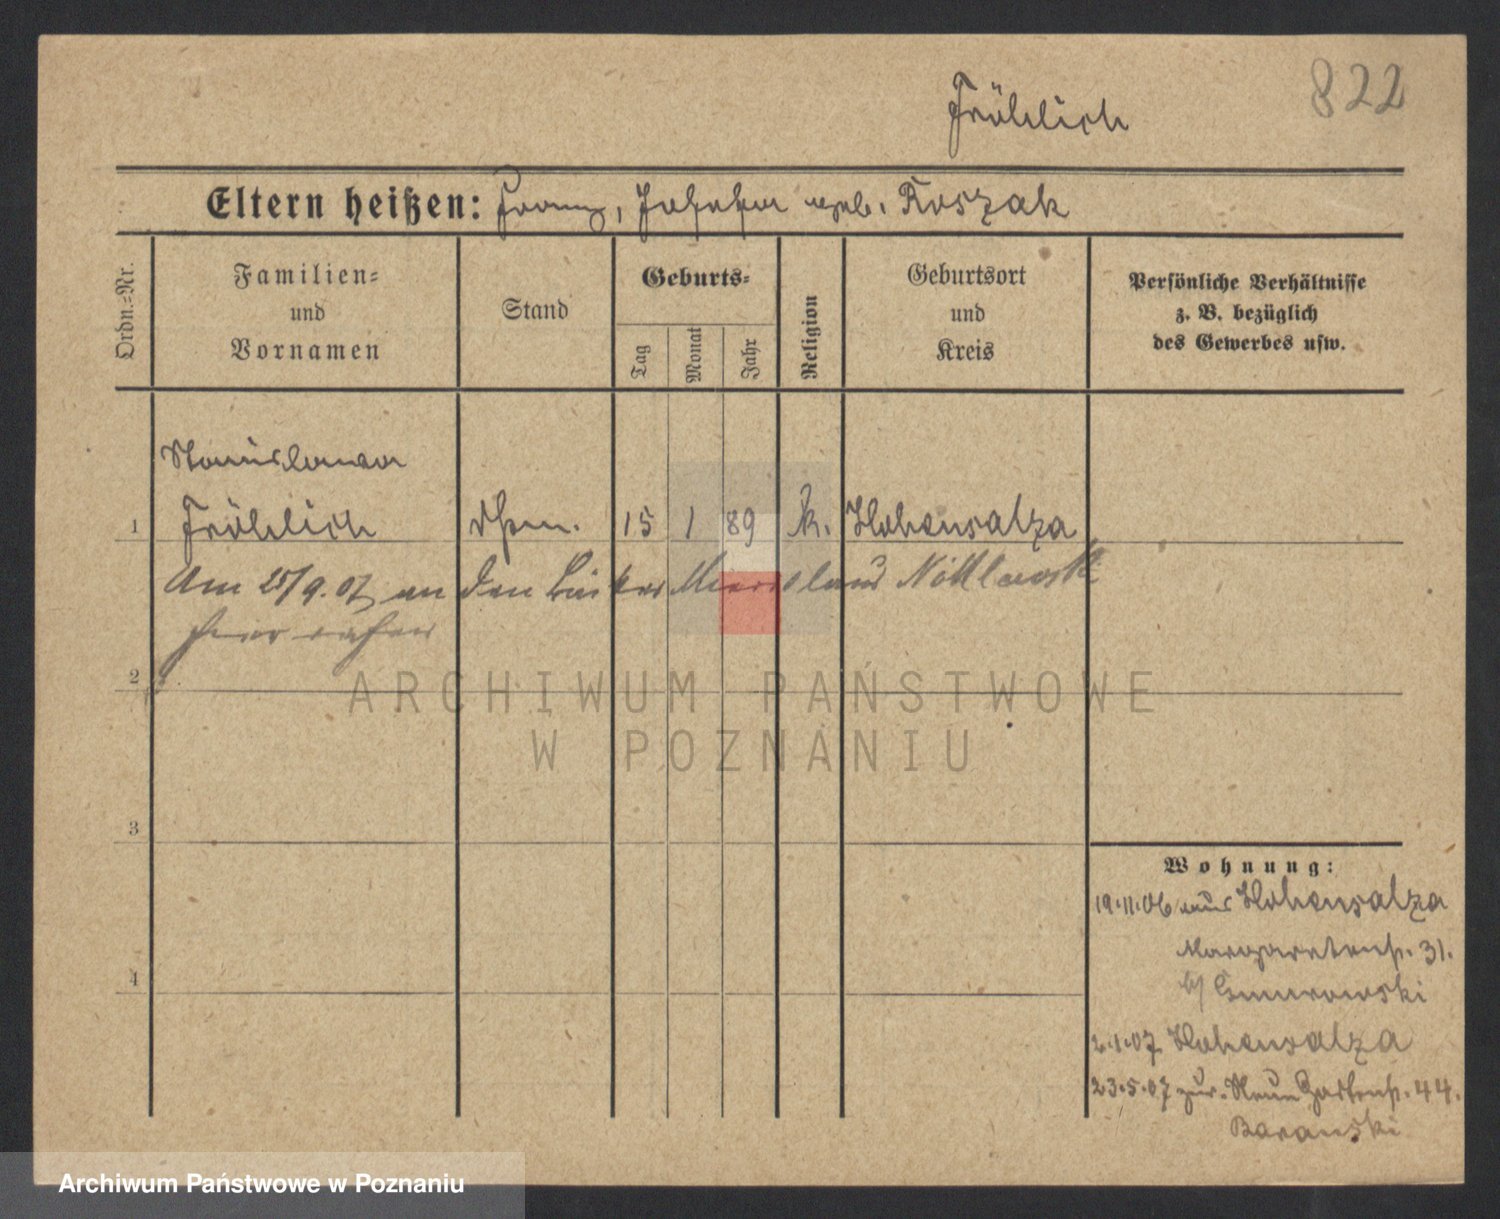 822
Fröhlich
Eltern heißen: Franz, Josefa geb. Roszak
Ordn.=Nr.
Familien=
und
Vornamen
Stand
Geburts=
Tag
Monat
Jahr
Religion
Geburtsort
und
Kreis
Persönliche Verhältnisse
z. B. bezüglich
des Gewerbes usw.
Stanislawa
1 Fröhlich 15 1 89 k. Hohensalza
Am 25/9.07 an den Bäcker
hier
2
3
4
Wohnung:
19.11.06 aus Hohensalza
Margaretenstr. 31.
b/
2.1.07 Hohensalza
23.5.07 zur. Neue Gartenstr. 44.
Baranski
ARCHIWUM PAŃSTWOWE
W POZNANIU
Archiwum Państwowe w Poznaniu